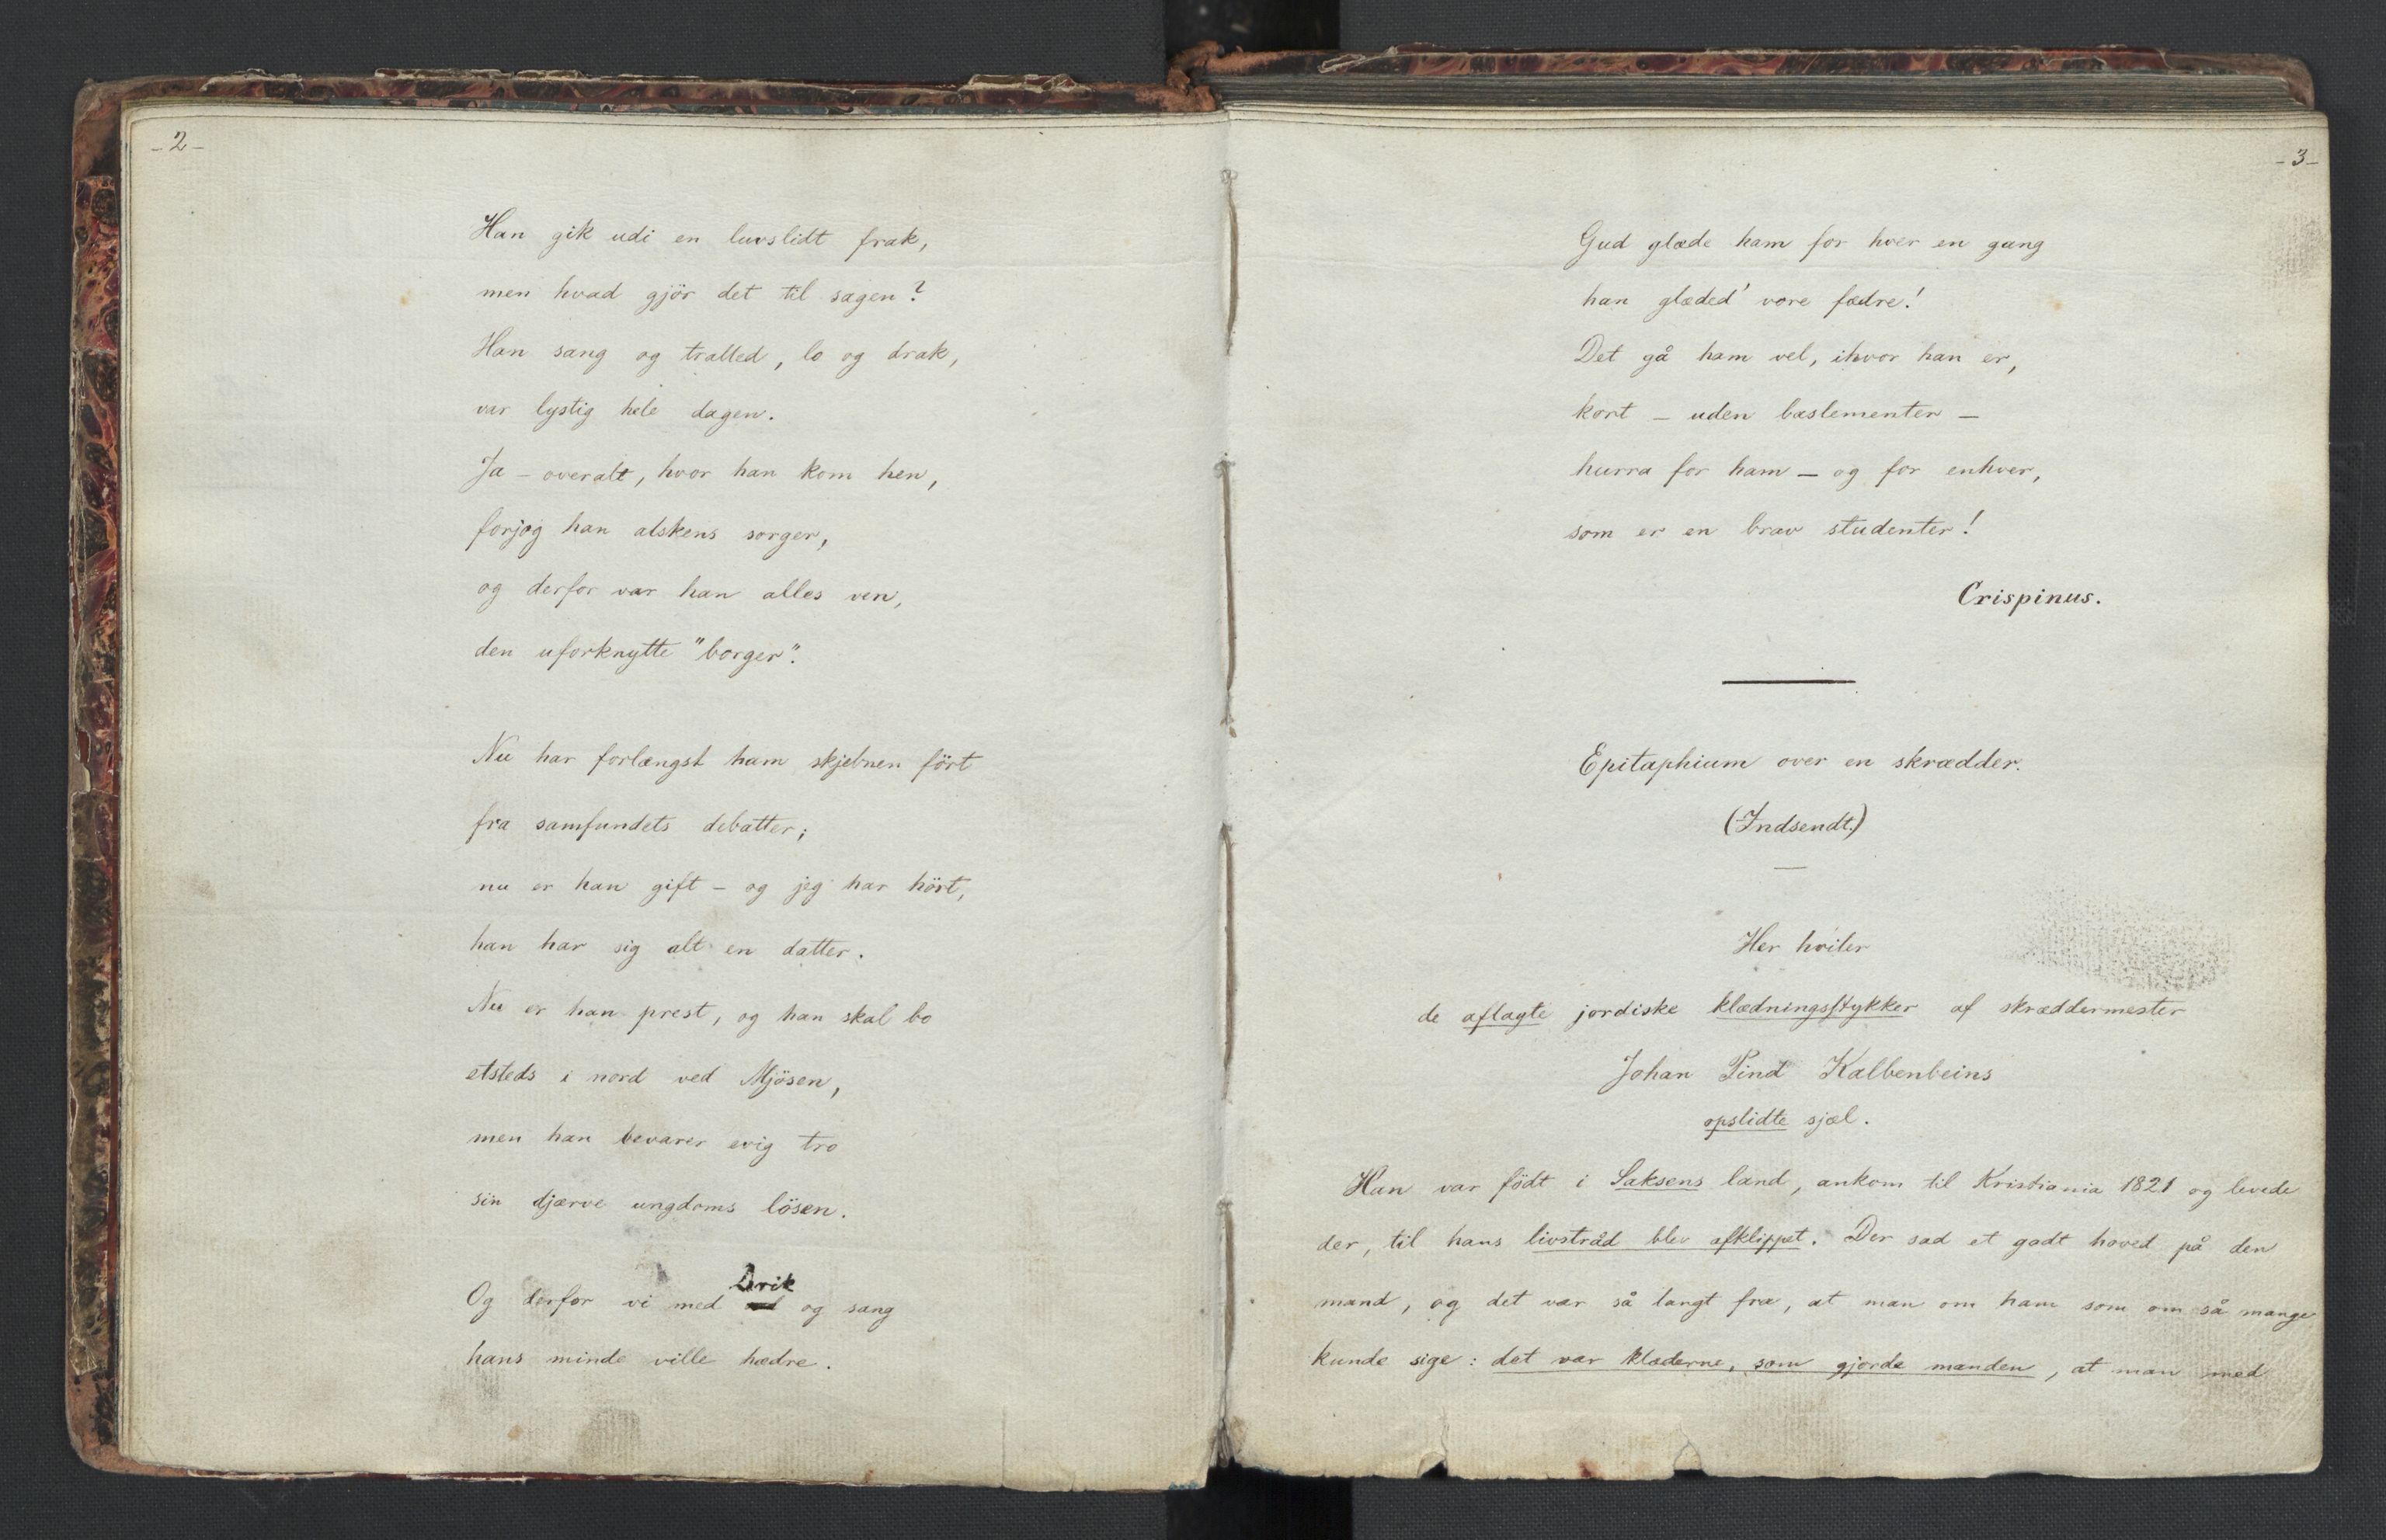 - 2 -
Han gik udi en luvslidt frak,
men hvad gjör det til sagen?
Han sang og tralled, lo og drak,
var lystig hele dagen.
Ja - overalt, hvor han kom hen,
forjog han alskens sorger,
og derfor var han alles ven,
den uforknytte "borger".
Nu har forlængst ham skjebnen fört
fra samfundets debatter;
nu er han gift - og jeg har hört,
han har sig alt en datter.
Nu er han prest, og han skal bo
etsteds i nord ved Mjösen,
men han bevarer evig tro
sin djærve ungdoms lösen.
Drik
Og derfor vi med og sang
hans minde ville hædre.
- 3 -
Gud glæde ham for hver en gang
han glæded' vore fædre!
Det gå ham vel, ihvor han er,
kort - uden bæslementer -
hurra for ham - og for enhver,
som er en brav studenter!
Crispinus.
Epitaphium over en skrædder.
(Indsendt.)
Her hviler
de aflagte jordiske klædningsstykker af skræddermester
Johan Pind Kalbenbeins
opslidte sjæl.
Han var født i Saksens land, ankom til Kristiania 1821 og levede
der, til hans livstråd blev afklippet. Der sad et godt hoved på den
mand, og det var så langt fra, at man om ham som om så mange
kunde sige: det var klæderne, som gjorde manden, at man med